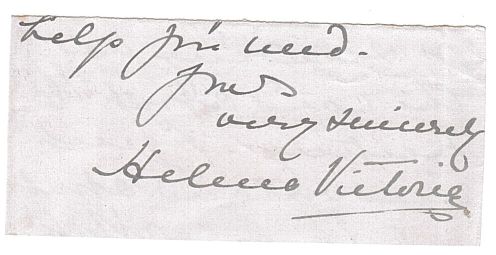 help you need.
yours
very sincerely
Helena Victoria